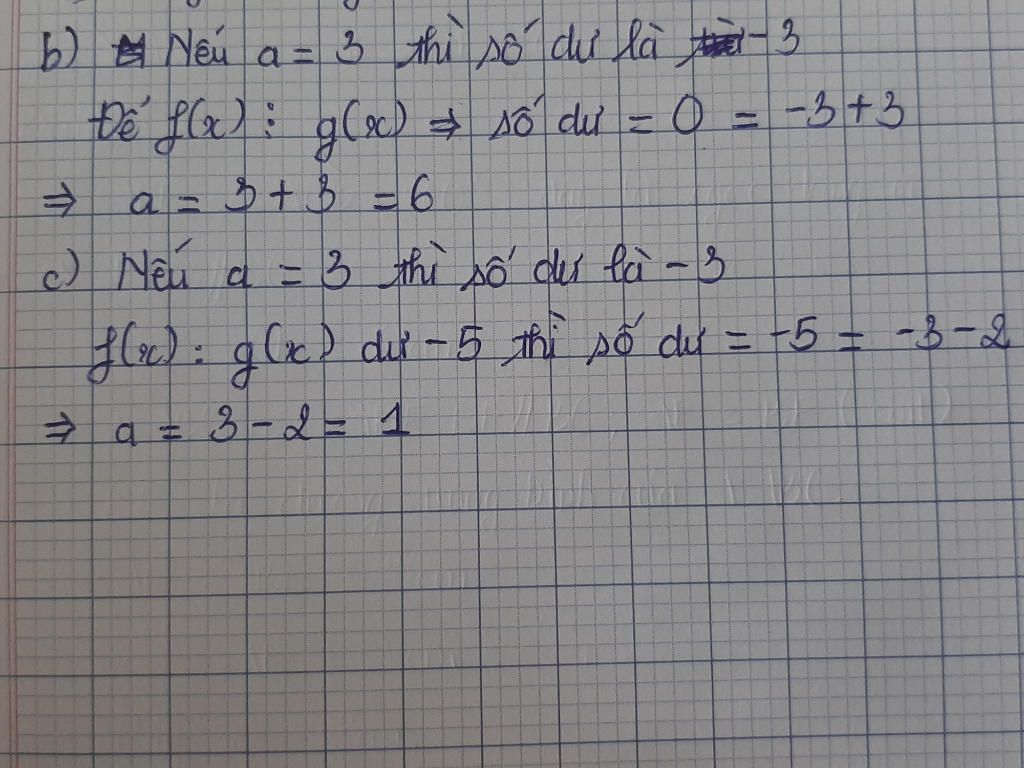 b) Nếu a = 3 thì số dư là -3
Để f(x) ⋮ g(x) => số dư = 0 = -3+3
=> a = 3+3 = 6
c) Nếu a = 3 thì số dư là -3
f(x) : g(x) dư -5 thì số dư = -5 = -3-2
=> a = 3-2 = 1